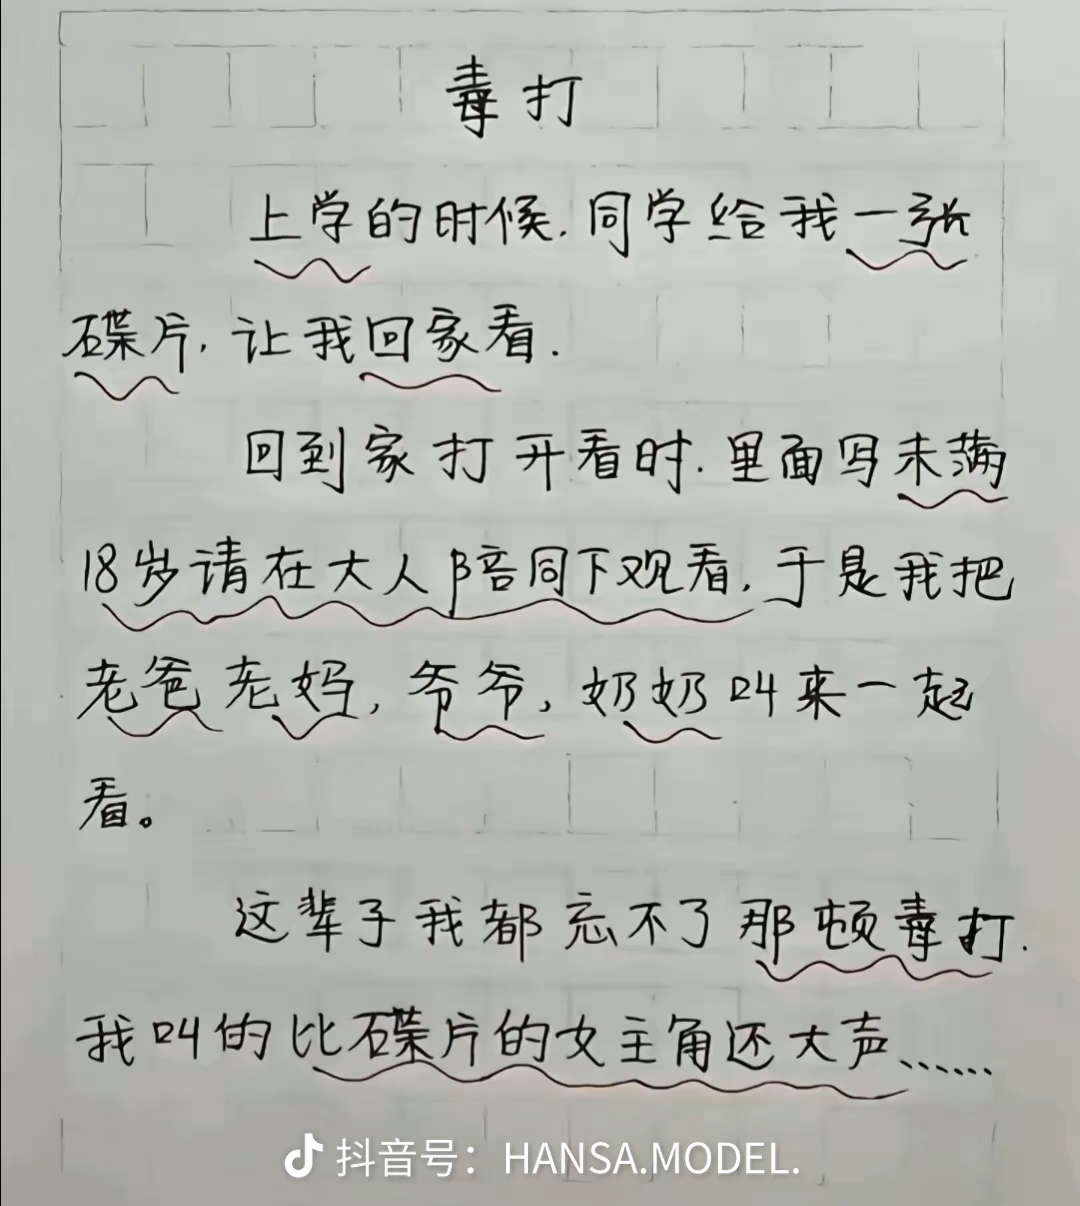 毒打
上学的时候.同学给我一张
碟片,让我回家看.
回到家打开看时.里面写未满
18岁请在大人陪同下观看,于是我把
老爸老妈,爷爷,奶奶叫来一起
看。
这辈子我都忘不了那顿毒打.
我叫的比碟片的女主角还大声......
抖音号：HANSA.MODEL.